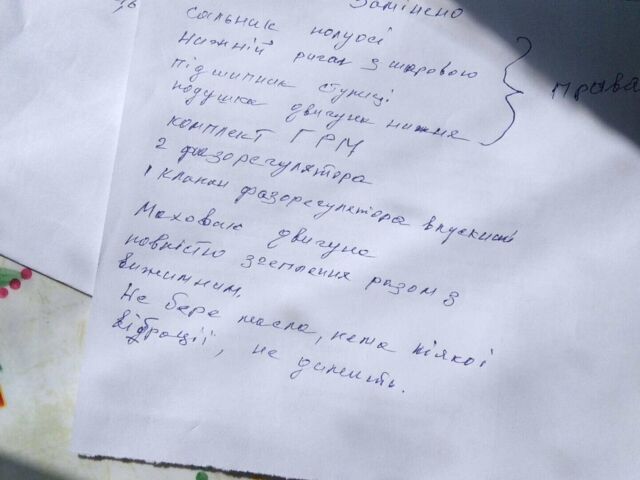 Замінено
сальник полуосі
нижній ричаг з шаровою
підшипник ступиці
подушка двигуна нижня
права
комплект ГРМ
2 фазорегулятора
1 клапан фазорегулятора впускний
Маховик двигуна
повністю зчеплення разом з
вижимним.
Не бере масла, нема ніякої
вібрації, не димить.